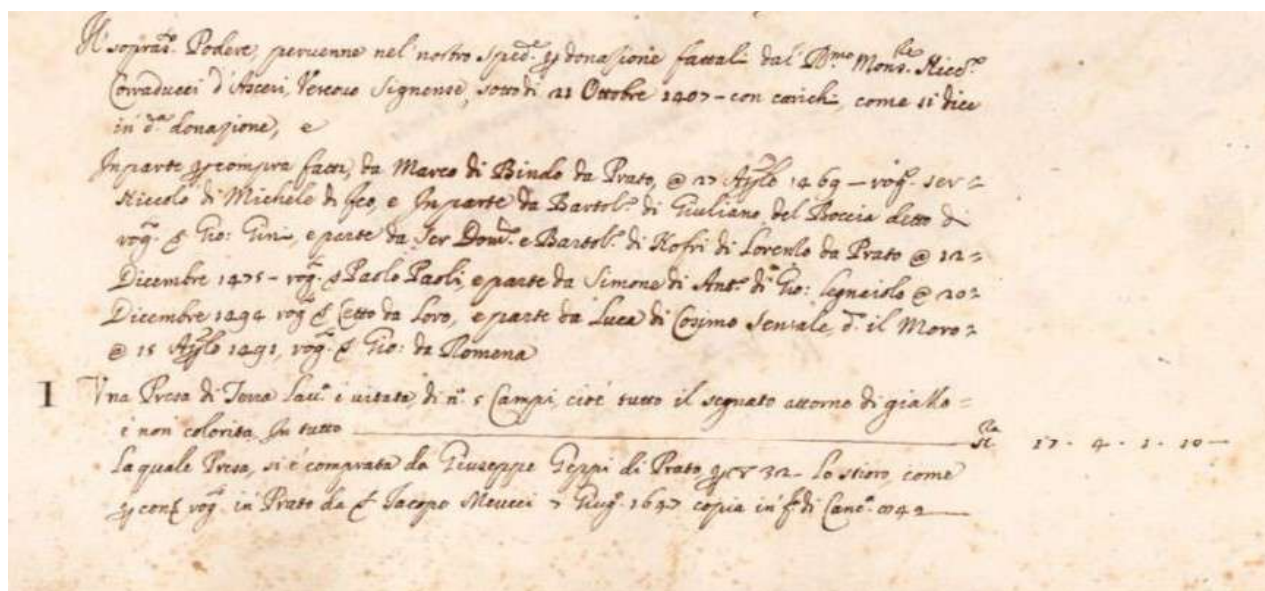 Il soprad.º Podere, pervenne nel nostro Sped.e p donazione fattali dal R.mo Mons.re Nicc.º
Corraducci d'Asceri, Vescovo Signense, sotto di 21 Ottobre 1407 - con carichi, come si dice
in d.ª donazione, e
In parte p compra fatti, da Marco di Bindo da Prato, @ 27 Aple 1469 — rog.º ser =
Niccolo di Michele di fco, e In parte da Bartol.º di Giuliano del Boccia detto di
rog.º S. Gio: Gini, e parte da Ser Dom.º e Bartol.º di Nofri di Lorenzo da Prato @ 12 =
Dicembre 1475 - rog.º S Paolo Paoli, e parte da Simone di Ant.º di Gio: legnaiolo @ 20 =
Dicembre 1494 rog S Cetto da Loro, e parte da Luca di Cosimo Sensale d.º il Moro =
@ 15 Aple 1491, rog.º S Gio: da Romena
I Una Presa di Terra Lau.ª e vitata, di n.º 5 Campi, cioè tutto il segnato attorno di giallo =
e non colorito In tutto — St.ra 17 . 4 . 1 . 10 —
La quale Presa, si è comprata da Giuseppe Geppi di Prato p 32 - lo stioro, come
p rog. in Prato da S Iacopo Meucci 7 Giug.º 1647 copia in f.ª di Canc.ª 42